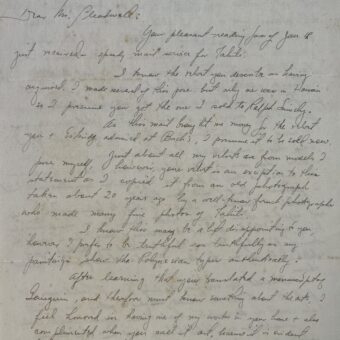 Dear Mr.
Your pleasant reading of Jan 18
just received - speedy mail service for Tahiti.
I know the velvet you describe as having
acquired. I made several of this pose but only one was in Hawaii
so I presume you got the one I sold to Ralph
As this mail brought me money for the velvet
you + admired at Bach's, I presume it to be sold now.
Just about all my velvets are from models I
pose myself, however, your velvet is an exception to this
statement as I copied it from an old photograph
taken about 20 years ago by a well known French photographer
who made many fine photos of Tahiti.
I know this may be a bit disappointing to you,
however I prefer to be truthful - as truthfully as my
paintings show the Polynesian types authentically.
After learning that you translated a manuscript by
Gauguin, and therefore must know something about the arts, I
feel honored in having one of my works in your home + also
complimented when you call it art, because it is evident